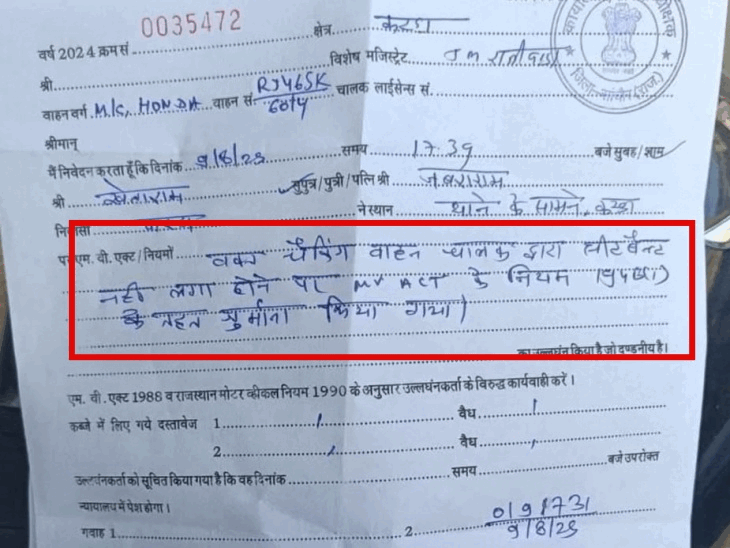 0035472
वर्ष 2024 क्रम सं
क्षेत्र करडा
विशेष मजिस्ट्रेट J M रानीवाडा
श्री
वाहन वर्ग M/C, HONDA वाहन सं. RJ46SK 6014 चालक लाईसेन्स सं.
श्रीमान्
में निवेदन करता हूँ कि दिनांक 9/8/25 समय 17:39 बजे सुबह/शाम
श्री सुपुत्र/पुत्री/पत्नि श्री जबराराम
निवासी ने स्थान थाने के सामने, करडा
एम. वी. एक्ट/नियमों वक्त चैकिंग वाहन चालक द्वारा सीटबैल्ट
नही लगा होने पर MV ACT के नियम 194B(i)
के तहत जुर्माना किया गया।
का उल्लघंन किया है जो दण्डनीय है।
एम. वी. एक्ट 1988 व राजस्थान मोटर व्हीकल नियम 1990 के अनुसार उल्लघंनकर्ता के विरुद्ध कार्यवाही करें।
कब्जे में लिए गये दस्तावेज 1. वैध
2. वैध
उल्लघंनकर्ता को सूचित किया गया है कि वह दिनांक समय बजे उपरोक्त
न्यायालय में पेश होगा।
गवाह 1. 2.
9/8/25